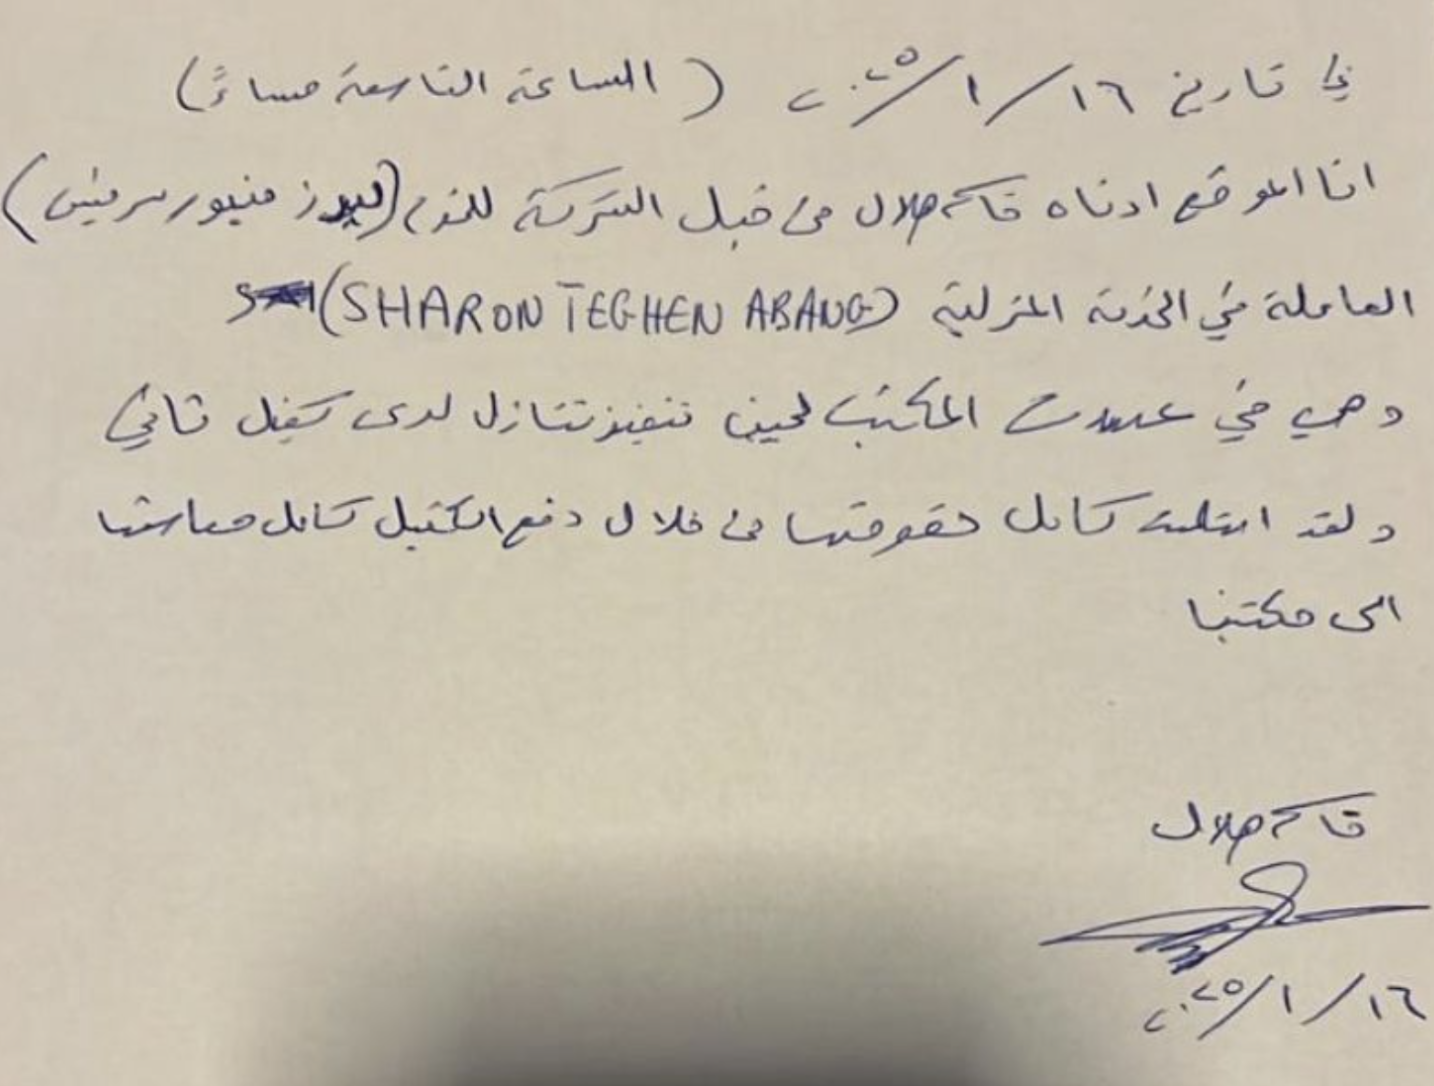 في تاريخ ١٦/١/٢٠٢٥ (الساعة التاسعة مساءً)
انا الموقع ادناه قاسم هلال من قبل الشركة للخدم (ليدرز منيور سرفيس)
العاملة في الخدمة المنزلية (SHARON TEGHEN ABANG)
وهي في عهدت المكتب لحين تنفيذ تنازل لدى كفيل ثاني
ولقد استلمت كامل حقوقها من خلال دفع الكفيل كامل معاشتها
الى مكتبنا
قاسم هلال
١٦/١/٢٠٢٥